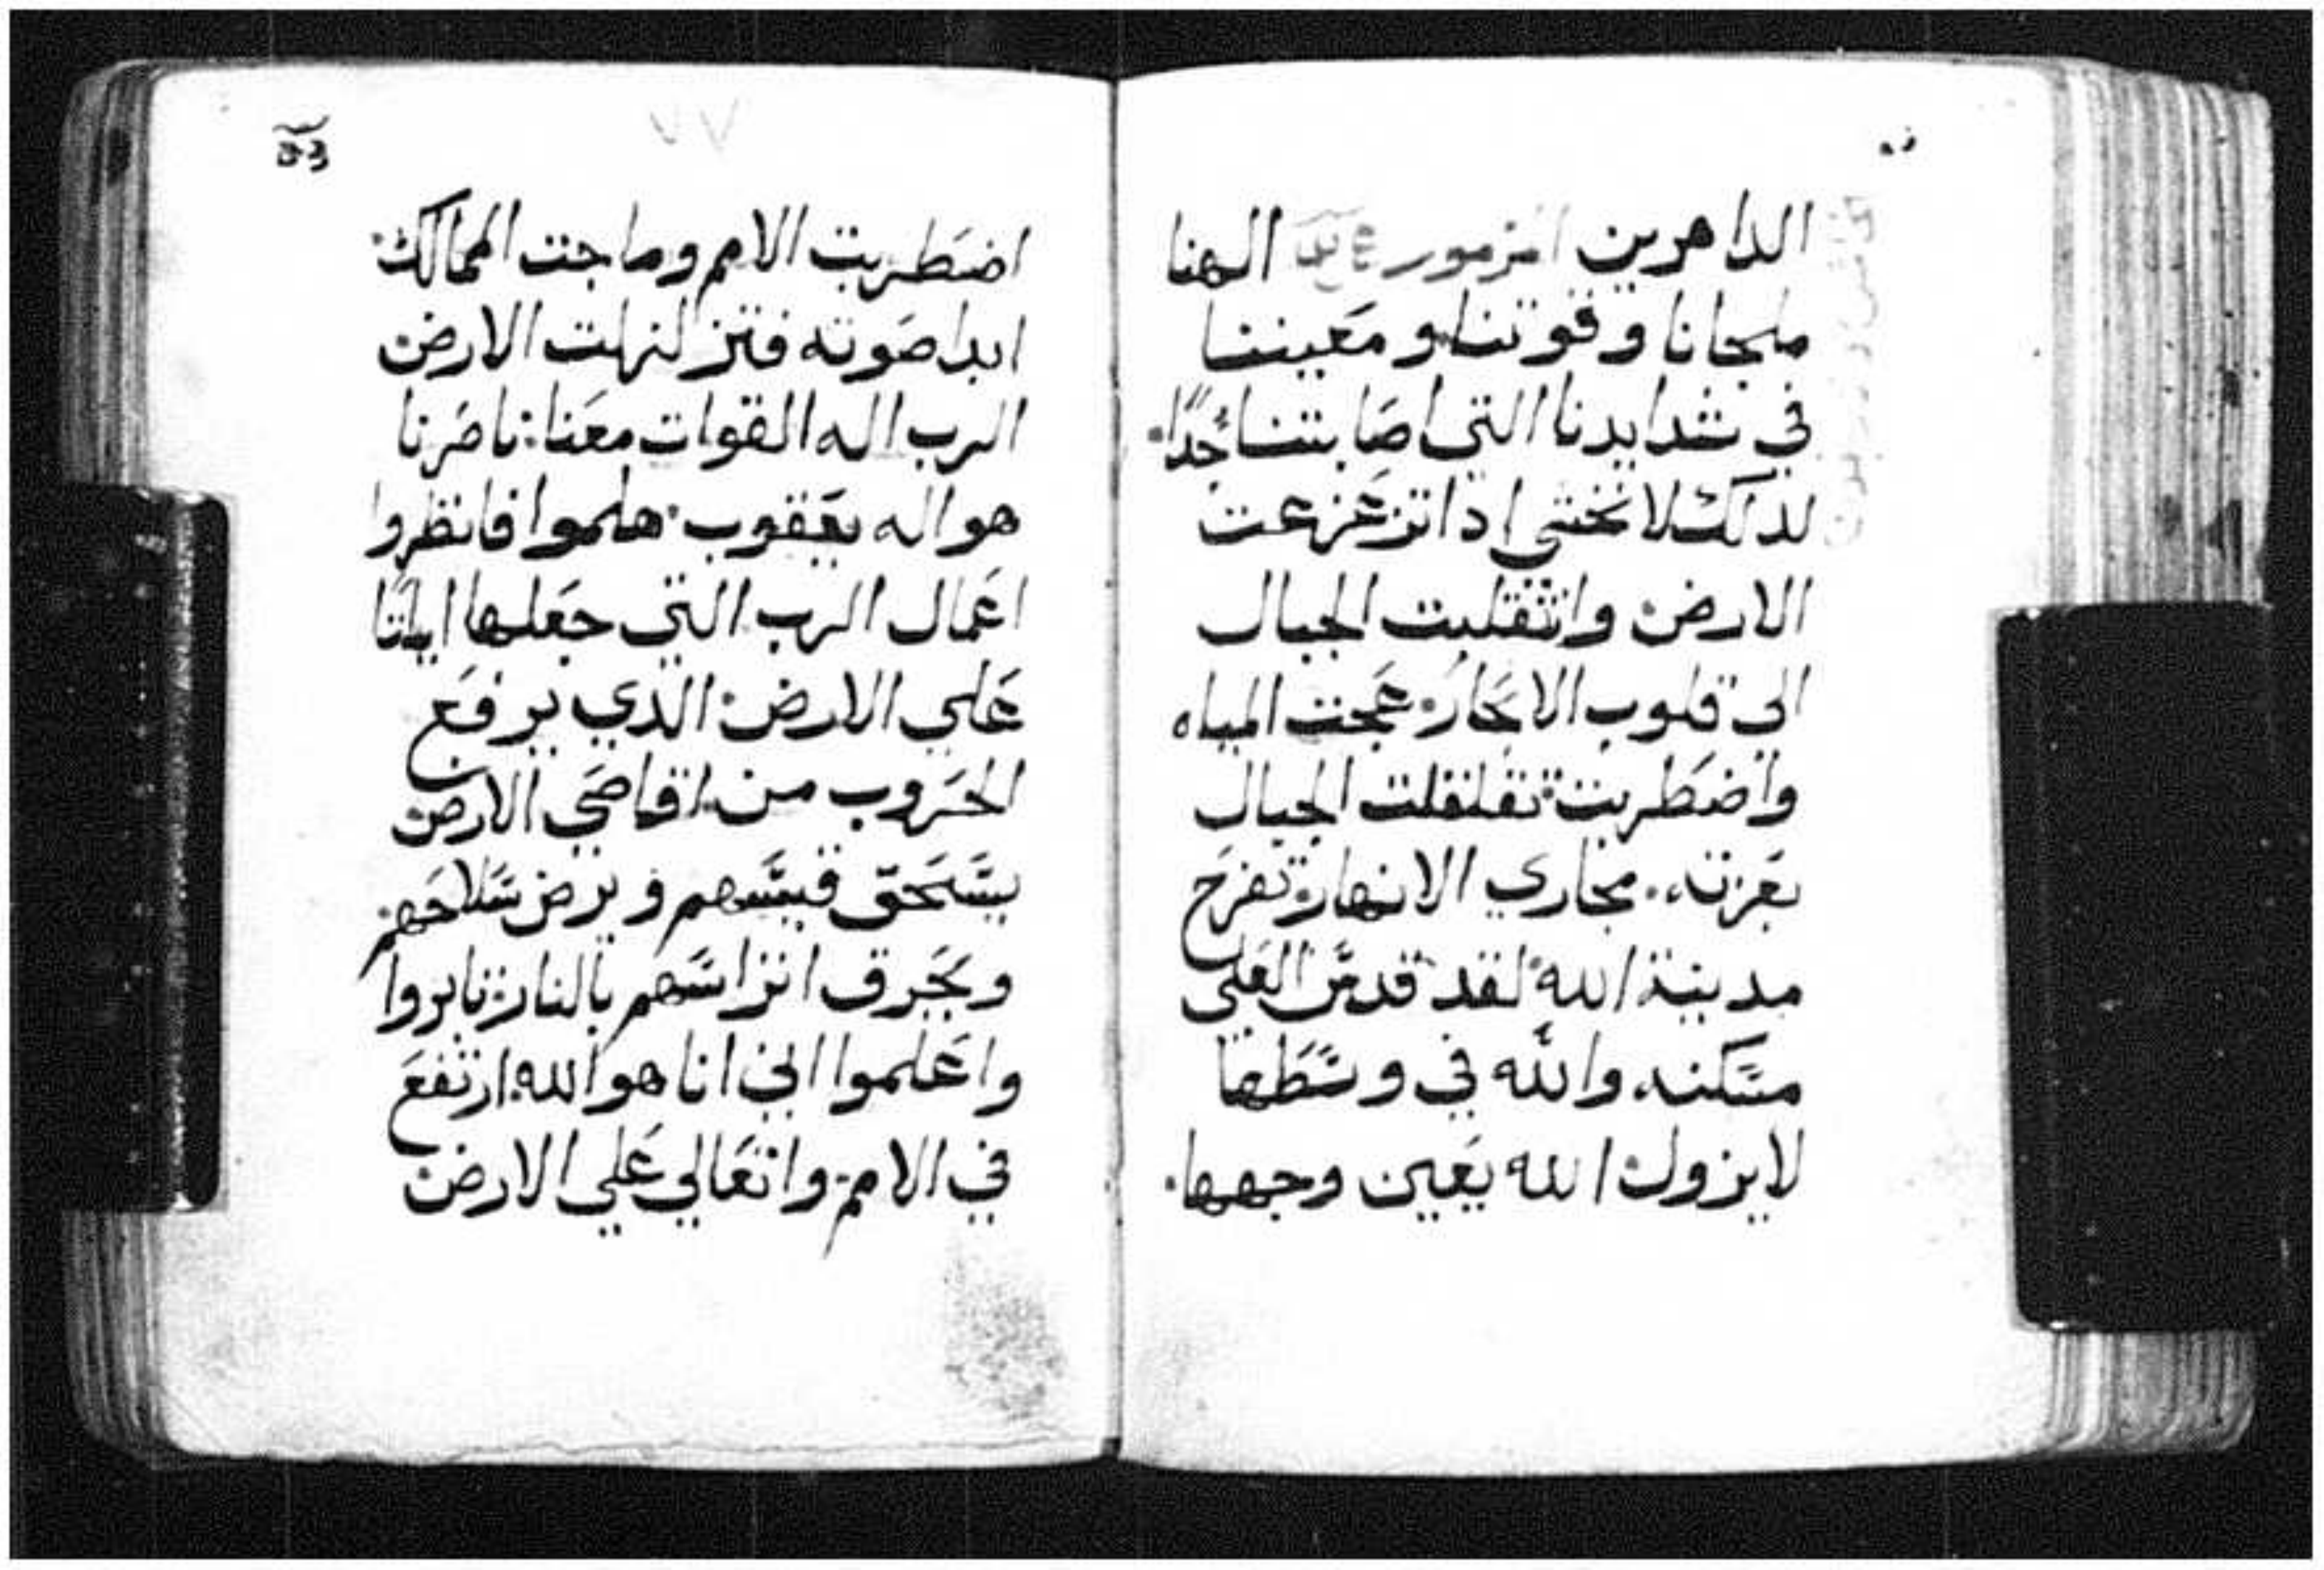 الداهرين المزمور الهنا
ملجانا وقوتنا ومعيننا
في شدايدنا التي اصابتنا جدًا.
لذلك لا نخشي اذا تزعزعت
الارض وانتقلبت الجبال
الي قلوب الابحار: عجت المياه
واضطربت: تقلقلت الجبال
بعزته. مجاري الانهار تفرح
مدينة الله لقد قدس العلي
مسكنه والله في وسطها
لا يزول الله يعين وجهها.
٧٧
اضطربت الامم وماجت الممالك:
ابدا صوته فتزلزلت الارض
الرب اله القوات معنا: ناصرنا
هو اله يعقوب. هلموا فانظروا
اعمال الرب التي جعلها اياتًا
علي الارض: الذي يرفع
الحروب من اقاصي الارض
يستحق قسيهم ويرض سلاحهم
ويحرق اتراسهم بالنار: ثابروا
واعلموا اني انا هو الله: ارتفع
في الامم: واتعالي علي الارض